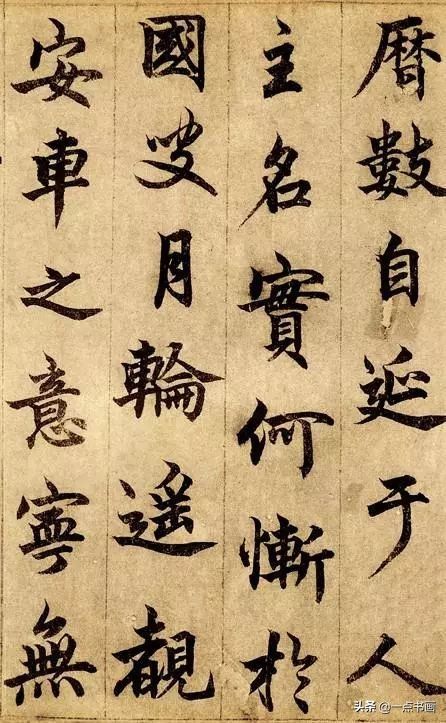 曆數自延于人
主名實何慚於
國叟月輪遥覩
安車之意寧無
头条 @一点书画